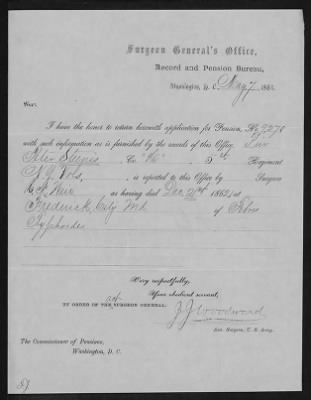 Surgeon General's Office,
Record and Pension Bureau,
Washington, D. C. May 7, 186
Sir:
I have the honor to return herewith application for Pension, No.
with such information as is furnished by the records of this Office.
Co. "K" 5th Regiment
N.Y. Vols, is reported to this Office by Surgeon
as having died Dec 1862, at
Frederick City Md of Febris
Typhoides
Very respectfully,
Your obedient servant,
BY ORDER OF THE act SURGEON GENERAL:
J.J. Woodward
Ass. Surgeon, U. S. Army.
The Commissioner of Pensions,
Washington, D. C.